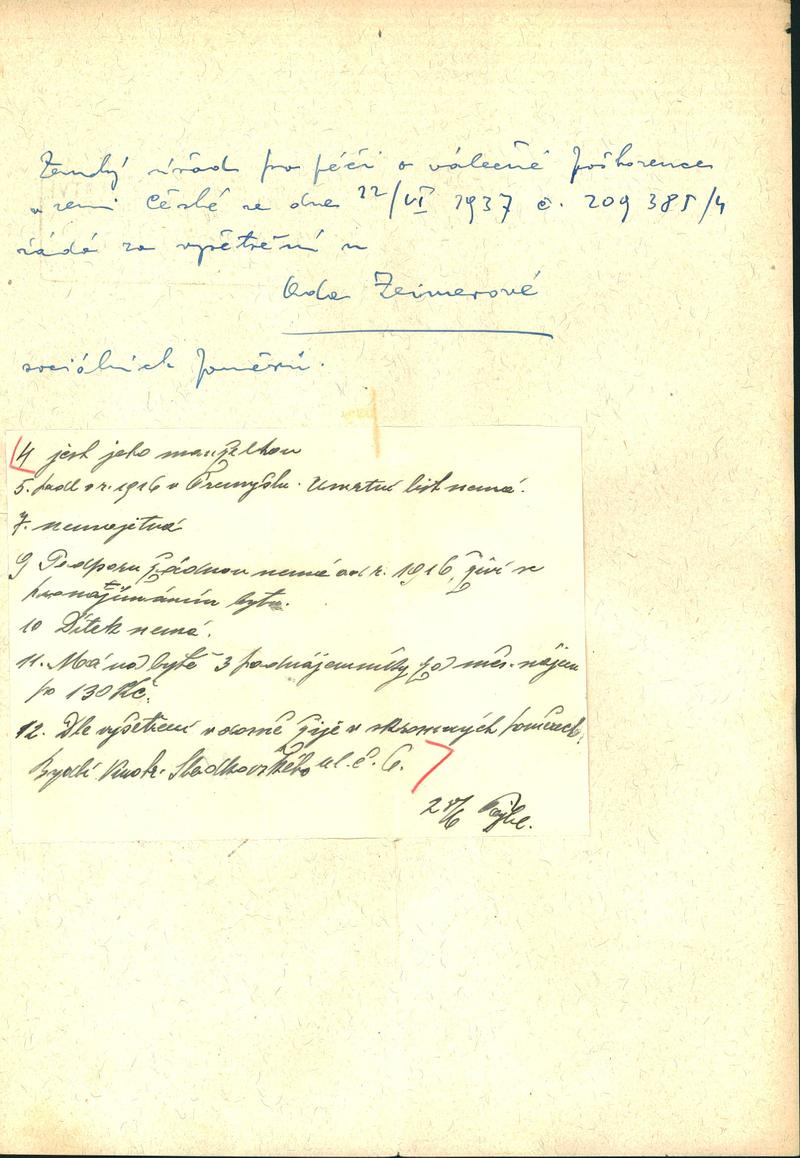 Zemský úřad pro péči o válečné poškozence
v zemi České ze dne 22/VI 1937 č. 209 385/4
žádá za vyšetření u
Oda Zeimerové
sociálních poměrů.
4 jest jeho manželkou
5. padl v r. 1916 v Přemyšlu. Úmrtní list nemá.
7. nemajetná
9 Podporu žádnou nemá od r. 1916, živí se
pronajímáním bytu.
10 Dítek nemá.
11. Má v bytě 3 podnájemníky za měs. nájem
po 130 Kč.
12. Dle vyšetření v domě žije v skromných poměrech.
Bydlí Sladkovského ul. č. 6.